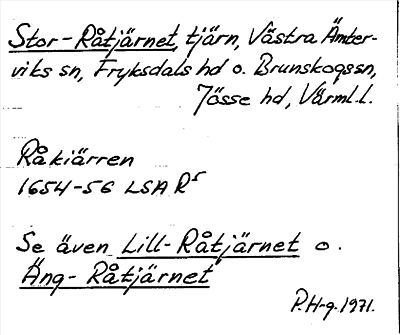 Stor-Råtjärnet, tjärn, Västra Ämter-
viks sn, Fryksdals hd o. Brunskogs sn,
Jösse hd, Värml. l.
Råkiärren
1654-56 LSA R5
Se även Lill-Råtjärnet o.
Äng-Råtjärnet
P.H-g. 1971.